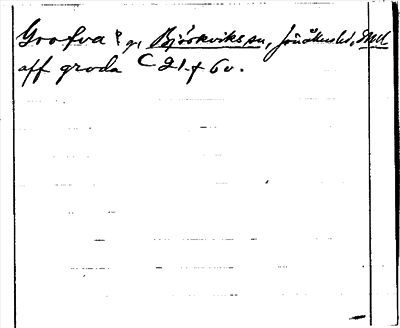 Grofva ? g, Björkviks sn, Jönåkers hd, Sdml
aff groda C 21 f 60.